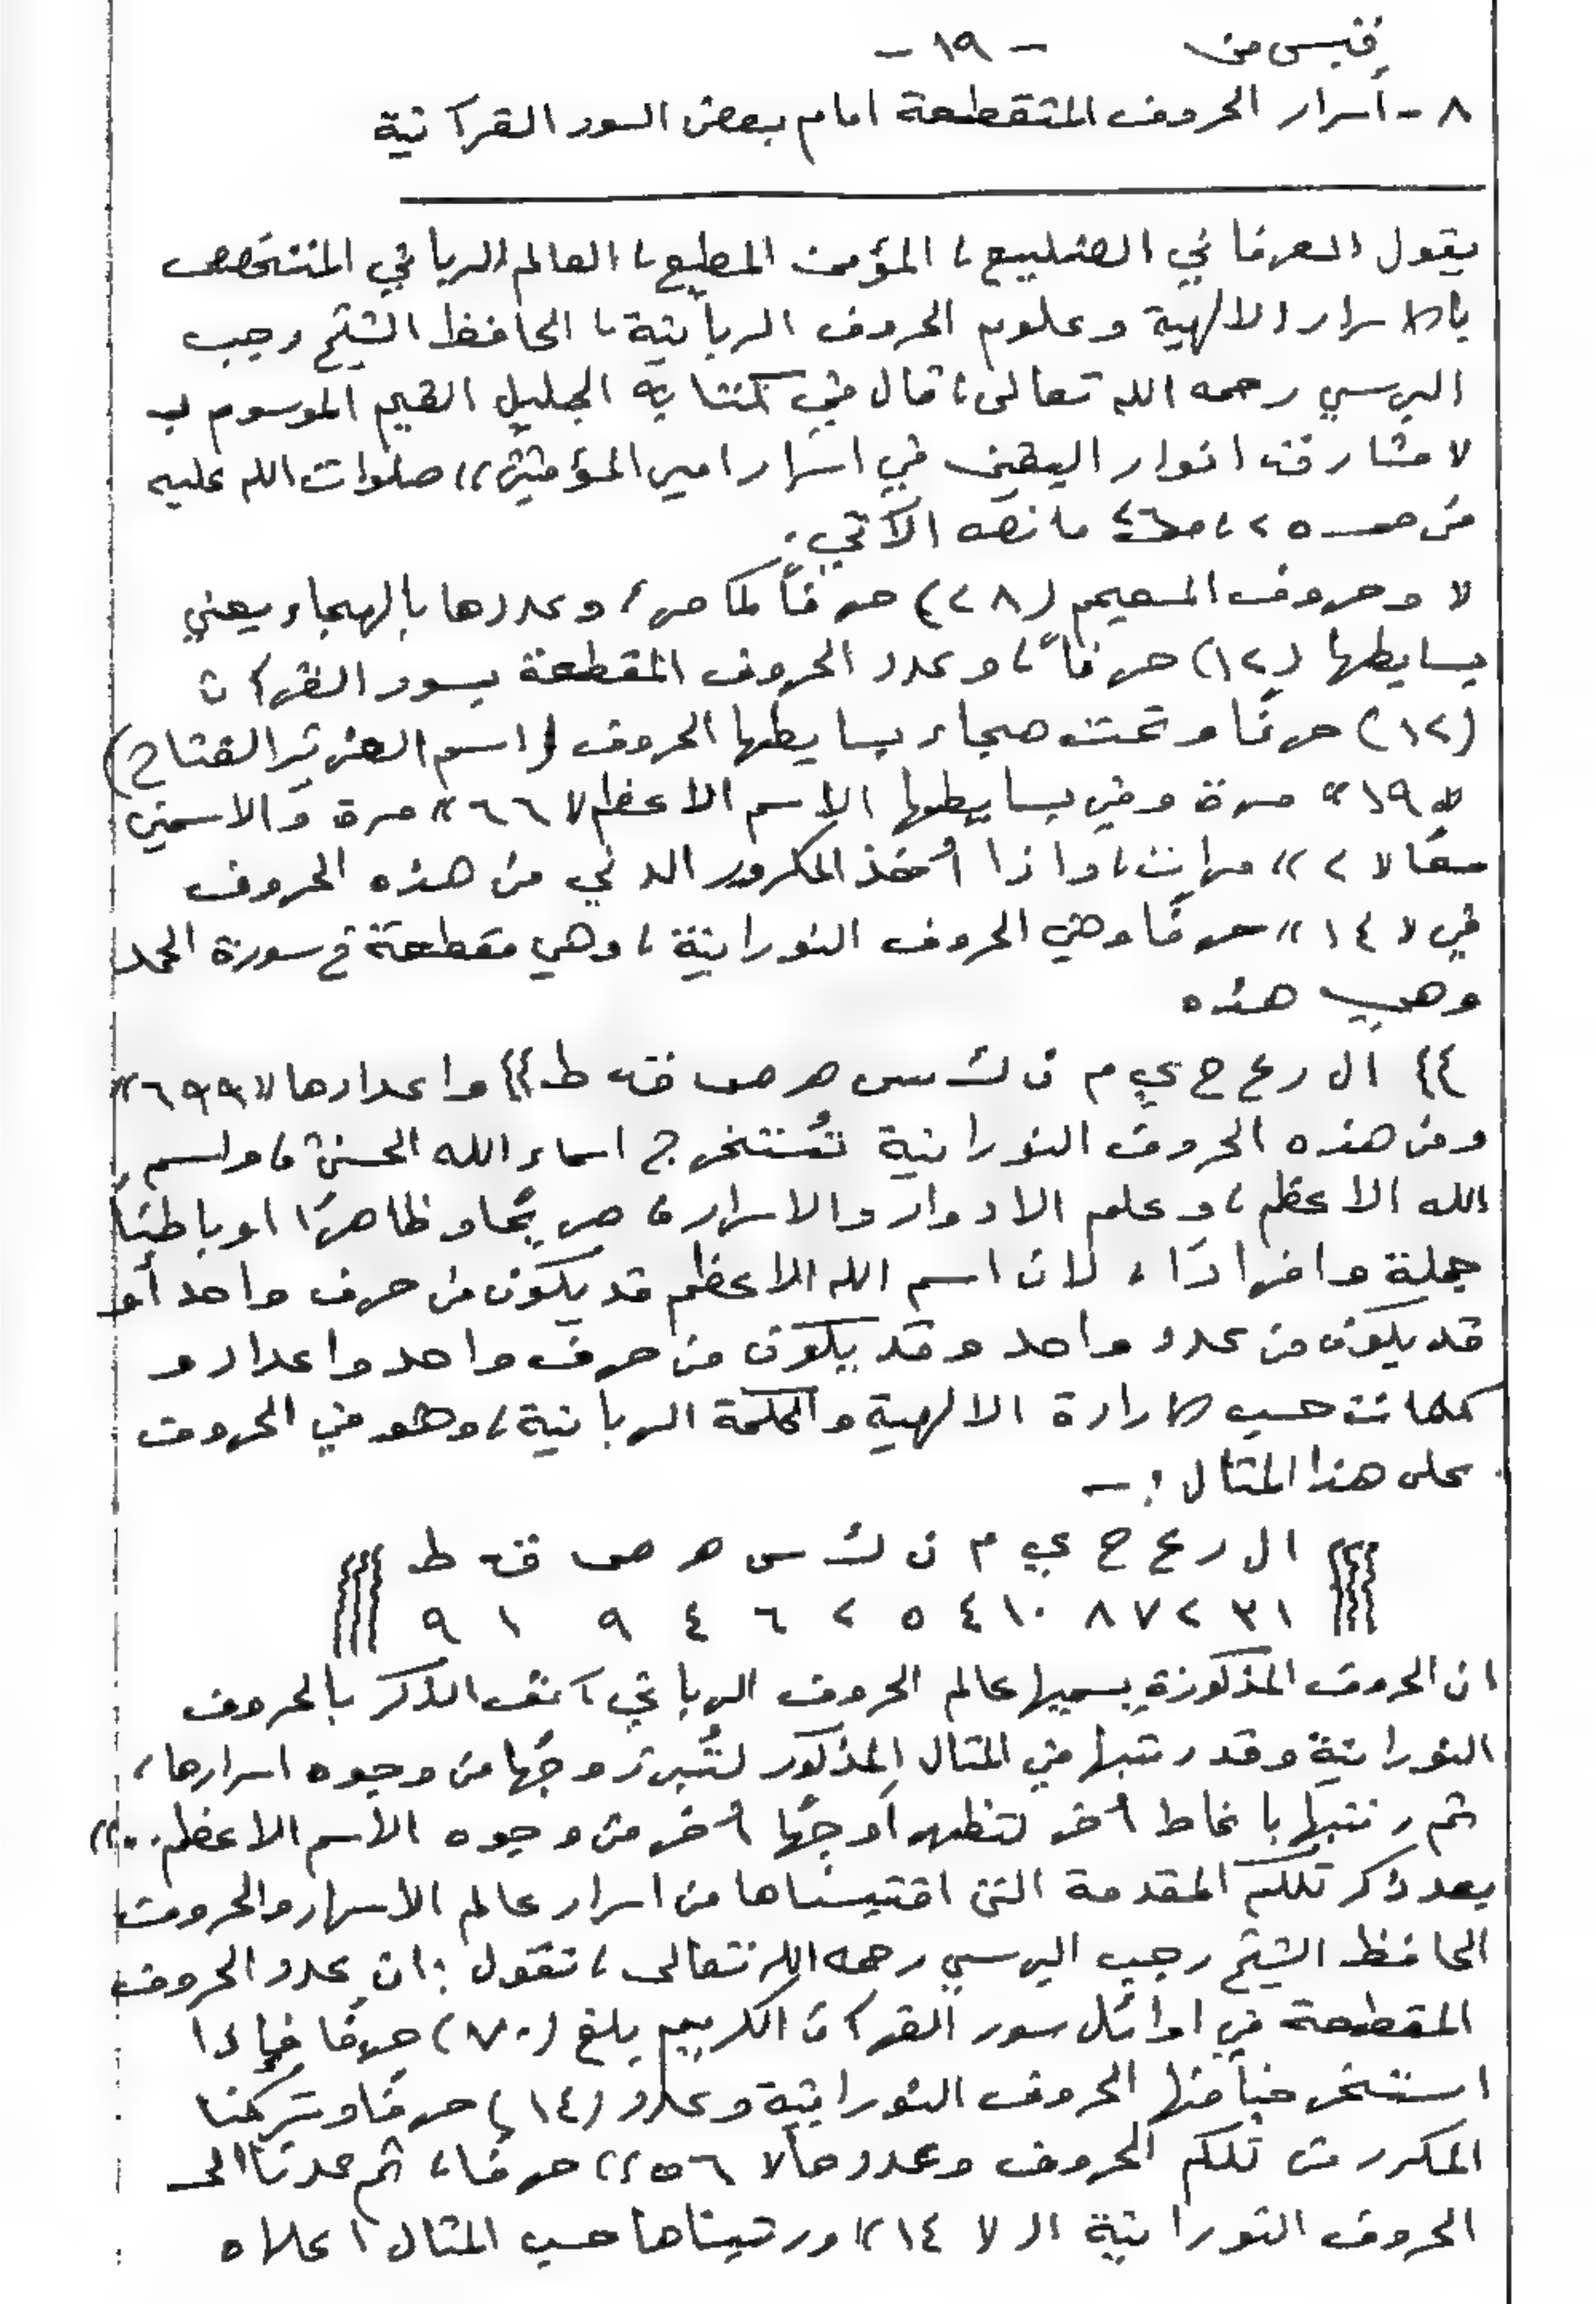 قبس من - ١٩ -
٨ - أسرار الحروف المتقطعة امام بعض السور القرآنية
يقول العرفاني الضليع، المؤمن المطيع، العالم الرباني المتخصص
بالاسرار الالهية وعلوم الحروف الربانية، الحافظ الشيخ رجب
البرسي رحمه الله تعالى، قال في كتابه الجليل القيم الموسوم بـ
«مشارق انوار اليقين في اسرار امير المؤمنين» صلوات الله عليه
من صـ ٢٥، مانصه الآتي:
« وحروف المعجم (٢٨) حرفاً كما مر، وعددها بالهجاء يعني
بسايطها (١٢) حرفاً، وعدد الحروف المقطعة بسور القرآن
(١٢) حرفًا وتحت هجاء بسايطها الحروف (اسم العزيز الفتاح)
«١٩» مرة وفي بسايطها الاسم الاعظم «٦٦» مرة والاسمين
معًا «٢» مرات، واذا أُخذ المكرور الذي من هذه الحروف
في «١٤» حرفًا وهي الحروف النورانية، وهي مقطعة في سورة الحمد
وهي هذه
{{ ال ر ع ح ي م ن ك س ه ص ق ط }} واعدادها «٦٩٩»
ومن هذه الحروف النورانية تُستخرج اسماء الله الحسنى، واسم
الله الاعظم، وعلم الادوار والاسرار، صريحًا وظاهرًا او باطنًا
جملة وافرادًا، لان اسم الله الاعظم قد يكون من حرف واحد أو
قد يكون من عدد واحد وقد يكون من حرف واحد واعداد و
كلمات حسب الارادة الالهية والحكمة الربانية، وهو في الحروف
على هذا المثال: -
ال ر ع ح ي م ن ك س ه ص ق ط
١ ٣ ٢ ٧ ٨ ١٠ ٤ ٥ ٢ ٦ ٤ ٩ ١ ٩
ان الحروف المذكورة يسميها عالم الحروف الرباني آنف الذكر بالحروف
النورانية وقد رتبها في المثال المذكور لتُبرز وجهًا من وجوه اسرارها،
ثم رتبها بانماط أُخر لتظهر أوجهًا أُخر من وجوه الأسم الاعظم..»
بعد ذكر تلكم المقدمة التي اقتبسناها من اسرار عالم الأسرار والحروف
الحافظ الشيخ رجب البرسي رحمه الله تعالى، نقول: ان عدد الحروف
المقطعة في اوائل سور القرآن الكريم يبلغ (٧٠) حرفًا فإذا
استخرجنا منها الحروف النورانية وعدد (١٤) حرفًا وتركنا
المكرر من تلكم الحروف وعددها «٥٦» حرفًا، ثم عدنا الى
الحروف النورانية الـ «١٤» ورتبناها حسب المثال اعلاه